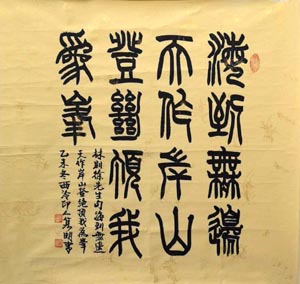 海到無邊
天作岸山
登絕頂我
為峯
林則徐先生句海到無邊
天作岸山登絕頂我為峯
乙未冬西泠印人明書